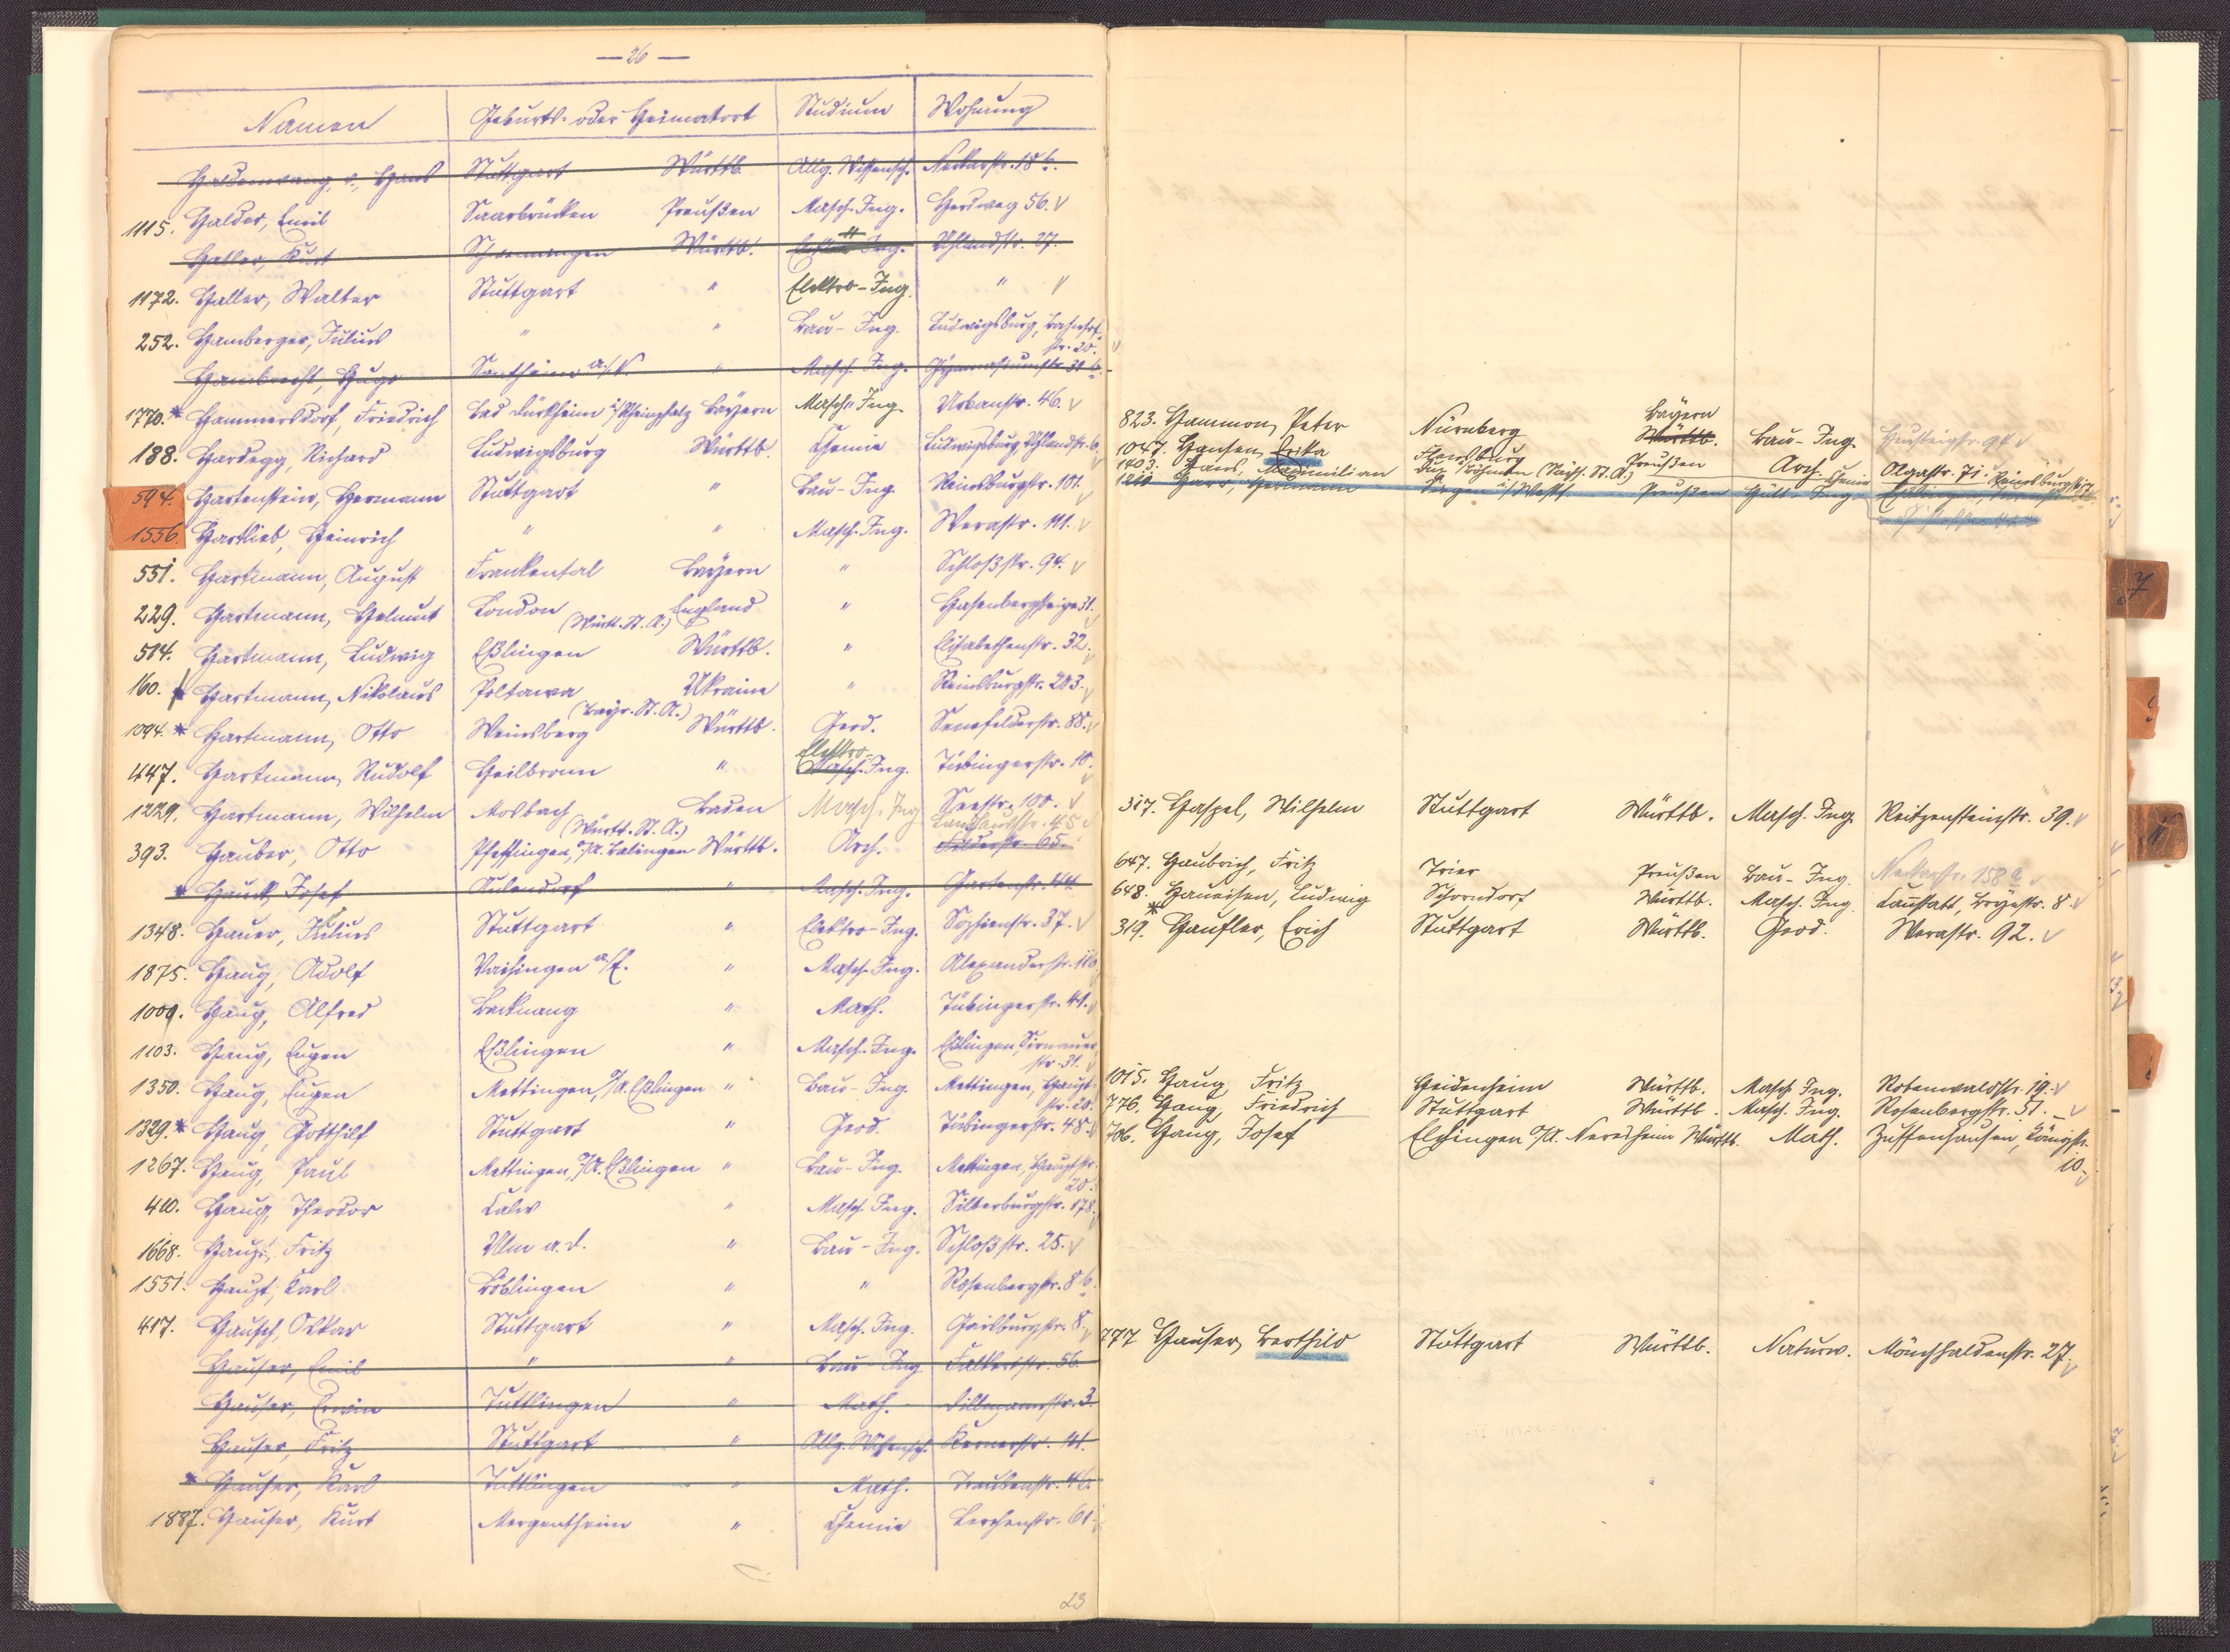 — 26 —
Namen Geburts- oder Heimatort Studium Wohnung
Haldenwang, v., Hans Stuttgart Württb. Allg. Wissensch. Neckarstr. 18 b.
1115. Halder, Emil Saarbrücken Preußen Masch. Ing. Herdweg 56.
Haller, Kurt Schwenningen Württb. Ing. Uhlandstr. 27.
1172. Haller, Walter Stuttgart " Elektro-Ing. " "
252. Hamberger, Julius " " Bau-Ing. Ludwigsburg, Bahnhof-
str. 20.
Hambrecht, Hugo Sontheim a/N. " Masch. Ing. Gymnasiumstr. 31 b.
1770. * Hammersdorf, Friedrich Bad Dürkheim i/Rheinpfalz Bayern Masch. Ing. Urbanstr. 46.
188. Hardegg, Richard Ludwigsburg Württb. Chemie Ludwigsburg, Uhlandstr. 6.
594. Hartenstein, Hermann Stuttgart " Bau-Ing. Reinsburgstr. 101.
1556. Hartlieb, Heinrich " " Masch. Ing. Werastr. 111.
551. Hartmann, August Frankental Bayern " Schloßstr. 94.
229. Hartmann, Helmut London (Württ. St. A.) England " Hasenbergsteige 31.
514. Hartmann, Ludwig Eßlingen Württb. " Elisabethenstr. 32.
160. * Hartmann, Nikolaus Poltawa (Bayr. St. A.) Ukraine " Reinsburgstr. 203.
1094. * Hartmann, Otto Weinsberg Württb. Geod. Senefelderstr. 88.
447. Hartmann, Rudolf Heilbronn " Elektro- Masch. Ing. Tübingerstr. 10.
1229. Hartmann, Wilhelm Mosbach (Württ. St. A.) Baden Masch. Ing. Seestr. 100.
393. Hauber, Otto Pfeffingen, O/A. Balingen Württb. Arch. Landhausstr. 45 Filderstr. 65.
* Hauck, Josef Aulendorf " Masch. Ing. Gartenstr. 44.
1348. Hauer, Julius Stuttgart " Elektro-Ing. Sophienstr. 37.
1875. Haug, Adolf Vaihingen a/E. " Masch. Ing. Alexanderstr. 116
1009. Haug, Alfred Backnang " Math. Tübingerstr. 41.
1103. Haug, Eugen Eßlingen " Masch. Ing. Eßlingen, Sirnauer-
str. 31.
1350. Haug, Eugen Mettingen, O/A. Eßlingen " Bau-Ing. Mettingen, Haupt-
str. 20.
1329. * Haug, Gotthilf Stuttgart " Geod. Tübingerstr. 48.
1267. Haug, Paul Mettingen, O/A. Eßlingen " Bau-Ing. Mettingen, Hauptstr.
20.
410. Haug, Theodor Calw " Masch. Ing. Silberburgstr. 178.
1668. Haug, Fritz Ulm a. D. " Bau-Ing. Schloßstr. 25.
1551. Haupt, Karl Böblingen " " Rosenbergstr. 8 b.
417. Hausch, Oskar Stuttgart " Masch. Ing. Gaisburgstr. 8.
Hauser, Emil " " Bau-Ing. Falkertstr. 56.
Hauser, Erwin Tuttlingen " Math. Dillmannstr. 3.
Hauser, Fritz Stuttgart " Allg. Wissensch. Kernerstr. 41.
* Hauser, Karl Tuttlingen " Math. Traubenstr. 46.
1887. Hauser, Kurt Mergentheim " Chemie Lerchenstr. 61.
23
823. Hammon, Peter Nürnberg Bayern Württb. Bau-Ing. Heusteigstr. 94
1047. Hansen, Erika Flensburg Preußen Arch. Olgastr. 71.
1403. Hans, Maximilian Dux Böhmen (Reichs. St. A.) Chemie Reinsburgstr.
1260 Harr, Hermann Siegen i/Westf. Preußen Hütt. Ing. Eßlingen,
317. Haspel, Wilhelm Stuttgart Württb. Masch. Ing. Reitzensteinstr. 39.
647. Haubrich, Fritz Trier Preußen Bau-Ing. Neckarstr. 158 a
648. Haueisen, Ludwig Schorndorf Württb. Masch. Ing. Cannstatt, 8.
319. * Haufler, Erich Stuttgart Württb. Geod. Werastr. 92.
1015. Haug, Fritz Heidenheim Württb. Masch. Ing. Rotenwaldstr. 19.
776. Haug, Friedrich Stuttgart Württb. Masch. Ing. Rosenbergstr. 51.
706. Haug, Josef Elchingen O/A. Neresheim Württb. Math. Zuffenhausen, Königstr.
10.
777 Hauser, Berthild Stuttgart Württb. Naturw. Mönchhaldenstr. 27.